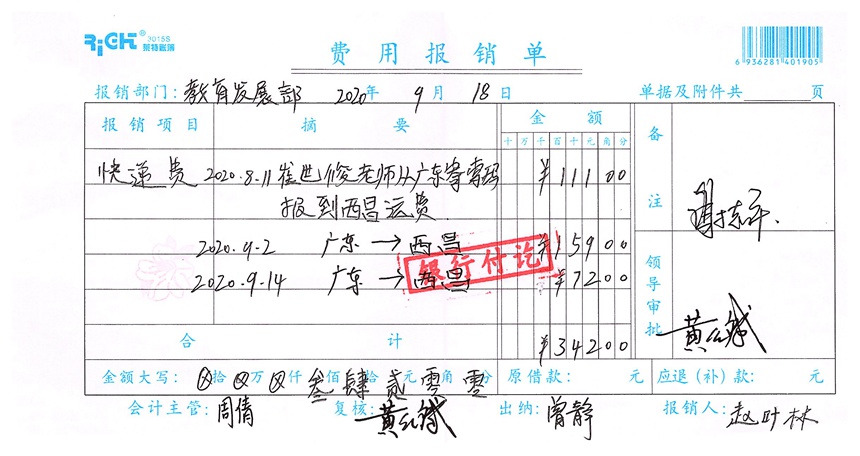 RiCH 2015S 莱特账簿
费用报销单
6 936281 401905
报销部门：教育发展部 2020年 9月 18日 单据及附件共 页
报销项目 摘要 金额 备注
十万千百十元角分
快递费 2020.8.11崔世修老师从广东寄 ¥11100
报到西昌运费
2020.9-2 广东→西昌 ¥15900
2020.9-14 广东→西昌 ¥7200
银行付讫
领导审批
合计 ¥34200
金额大写：⊗拾⊗万⊗仟叁佰肆拾贰元零角零分 原借款： 元 应退（补）款： 元
会计主管：周倩 复核： 出纳：曾静 报销人：赵叶林